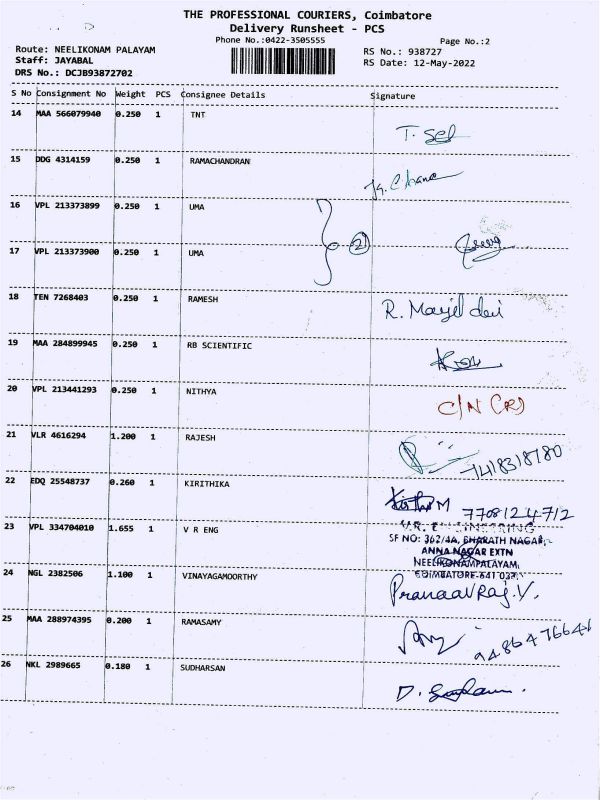 THE PROFESSIONAL COURIERS, Coimbatore
Delivery Runsheet - PCS
Phone No.:0422-3505555
Page No.:2
Route: NEELIKONAM PALAYAM
RS No.: 938727
Staff: JAYABAL
RS Date: 12-May-2022
DRS No.: DCJB93872702
S No Consignment No Weight PCS Consignee Details Signature
14 MAA 566079940 0.250 1 TNT
15 DDG 4314159 0.250 1 RAMACHANDRAN
16 VPL 213373899 0.250 1 UMA
2
17 VPL 213373900 0.250 1 UMA
18 TEN 7268403 0.250 1 RAMESH
19 MAA 284899945 0.250 1 RB SCIENTIFIC
20 VPL 213441293 0.250 1 NITHYA
C/N (R)
21 VLR 4616294 1.200 1 RAJESH
22 EDQ 25548737 0.260 1 KIRITHIKA
7708124712
23 VPL 334704010 1.655 1 V R ENG
V.R. ENGINEERING
SF NO: 362/4A, BHARATH NAGAR,
ANNA NAGAR EXTN
NEELIKONAMPALAYAM,
24 NGL 2382506 1.100 1 VINAYAGAMOORTHY
Pranaav Raj.V.
25 MAA 288974395 0.200 1 RAMASAMY
26 NKL 2989665 0.180 1 SUDHARSAN